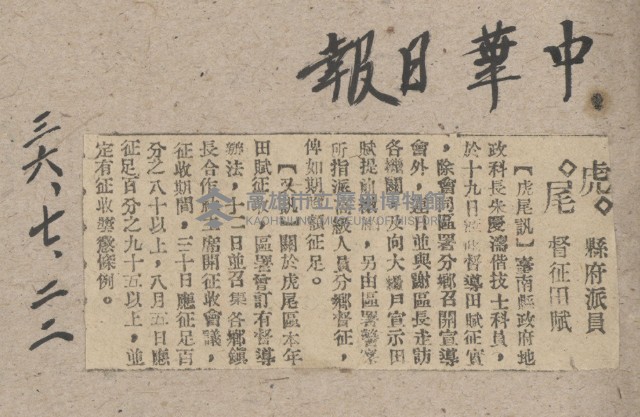 中華日報
三六、七、二二
虎◇
◇尾
縣府派員
督征田賦
【虎尾訊】臺南縣政府地
政科長朱慶濤偕技士科員,
於十九日 督導田賦征實
,除會同區署分鄉召開宣導
會外,連日並與謝區長走訪
各機關 及向大糧戶宣示田
賦提前繳 ,另由區署警察
所指派高級人員分鄉督征,
俾如期 額征足。
【又訊】關於虎尾區本年
田賦征 ,區署曾訂有督導
辦法,十二日並召集各鄉鎮
長合作 主席開征收會議,
征收期間,三十日應征足百
分之八十以上,八月五日應
征足百分之九十五以上,並
定有征收獎懲條例。
高雄市立歷史博物館
KAOHSIUNG MUSEUM OF HISTORY